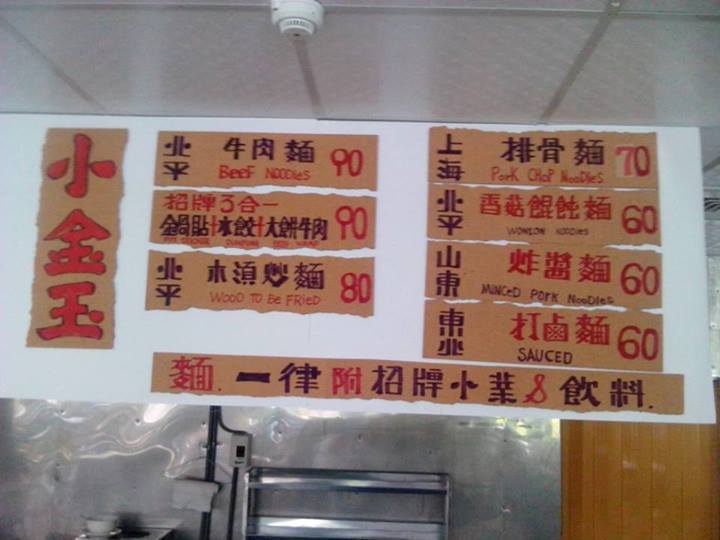 小金玉
北平 牛肉麵 90
BEEF NOODLES
招牌3合一
鍋貼+水餃+大餅牛肉 90
北平 木須炒麵 80
WOOD TO BE FRIED
上海 排骨麵 70
PORK CHOP NOODLES
北平 香菇餛飩麵 60
WONTON NOODLES
山東 炸醬麵 60
MINCED PORK NOODLES
東北 打鹵麵 60
SAUCED
麵.一律附招牌小菜&飲料.